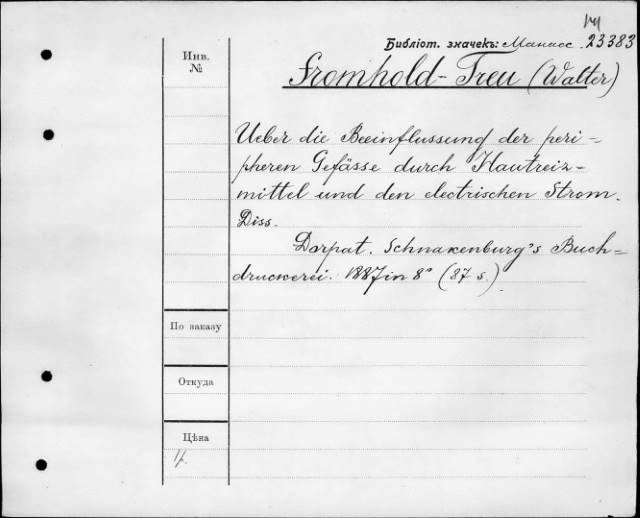 Библіот. значекъ: Манасс. 23383
Инв.
№
Fromhold-Treu (Walter)
Ueber die Beeinflussung der peri-
pheren Gefässe durch Hautreiz-
mittel und den electrischen Strom.
Diss.
Dorpat. Schnakenburg's Buch-
druckerei. 1887 in 8° (87 s.)
По заказу
Откуда
Цѣна